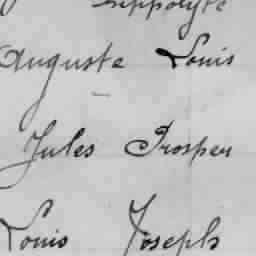 Hippolyte
Auguste Louis
Jules Prosper
Louis Joseph